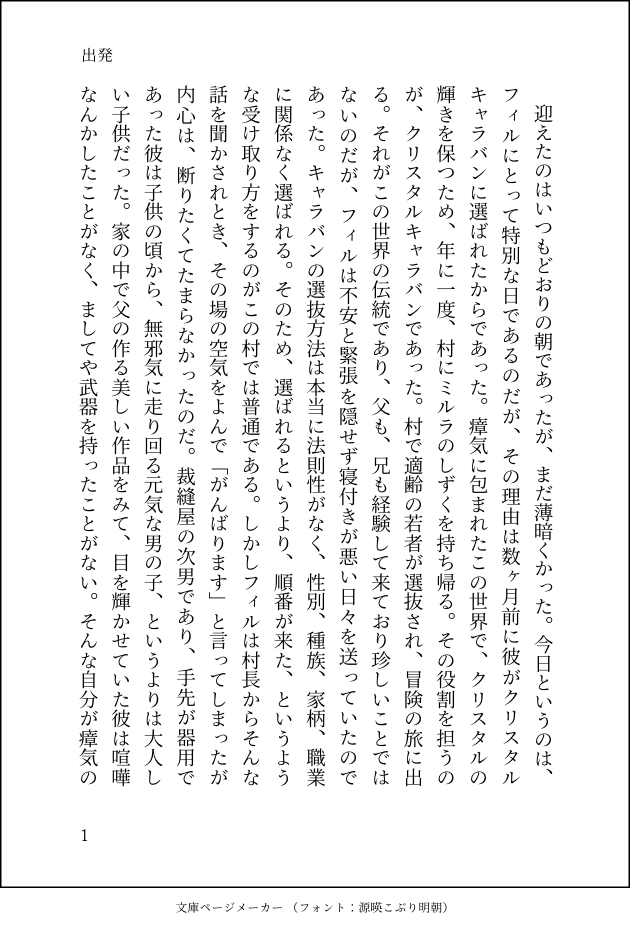 出発
　迎えたのはいつもどおりの朝であったが、まだ薄暗くかった。今日というのは、
フィルにとって特別な日であるのだが、その理由は数ヶ月前に彼がクリスタル
キャラバンに選ばれたからであった。瘴気に包まれたこの世界で、クリスタルの
輝きを保つため、年に一度、村にミルラのしずくを持ち帰る。その役割を担うの
が、クリスタルキャラバンであった。村で適齢の若者が選抜され、冒険の旅に出
る。それがこの世界の伝統であり、父も、兄も経験して来ており珍しいことでは
ないのだが、フィルは不安と緊張を隠せず寝付きが悪い日々を送っていたので
あった。キャラバンの選抜方法は本当に法則性がなく、性別、種族、家柄、職業
に関係なく選ばれる。そのため、選ばれるというより、順番が来た、というよう
な受け取り方をするのがこの村では普通である。しかしフィルは村長からそんな
話を聞かされとき、その場の空気をよんで「がんばります」と言ってしまったが
内心は、断りたくてたまらなかったのだ。裁縫屋の次男であり、手先が器用で
あった彼は子供の頃から、無邪気に走り回る元気な男の子、というよりは大人し
い子供だった。家の中で父の作る美しい作品をみて、目を輝かせていた彼は喧嘩
なんかしたことがなく、ましてや武器を持ったことがない。そんな自分が瘴気の
1
文庫ページメーカー（フォント：源暎こぶり明朝）